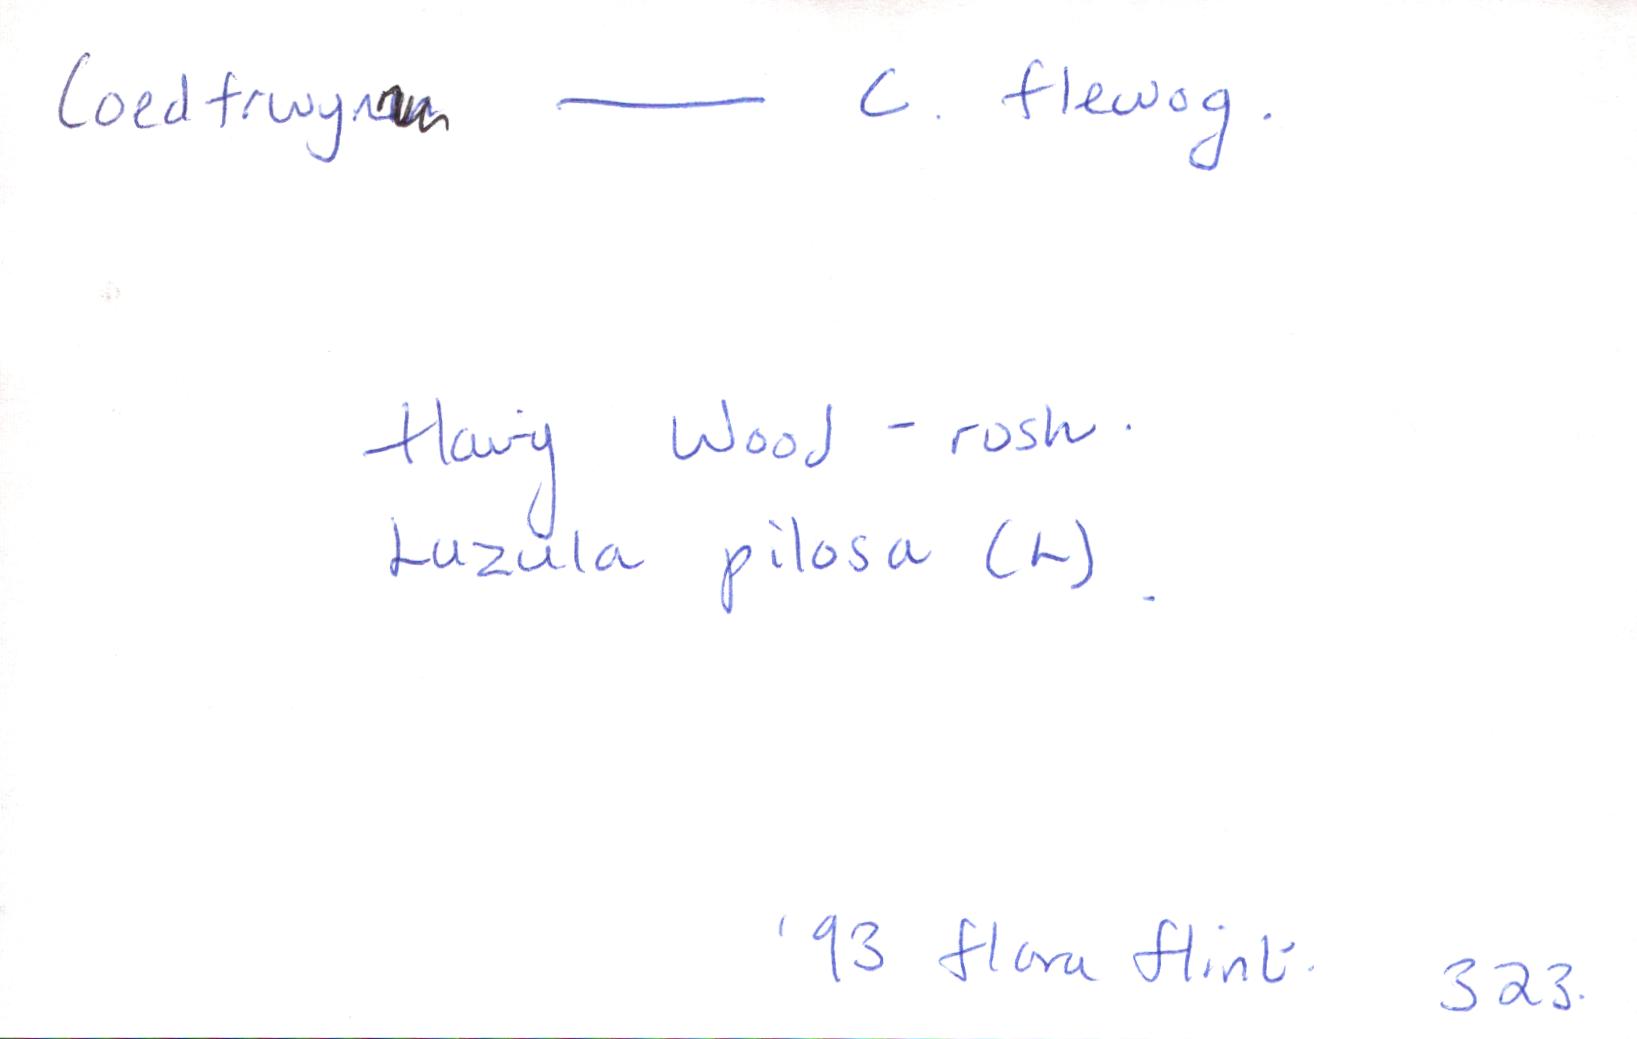 Coedfrwynen — C. flewog.
Hairy Wood - rush.
Luzula pilosa (L).
'93 flora flint. 323.